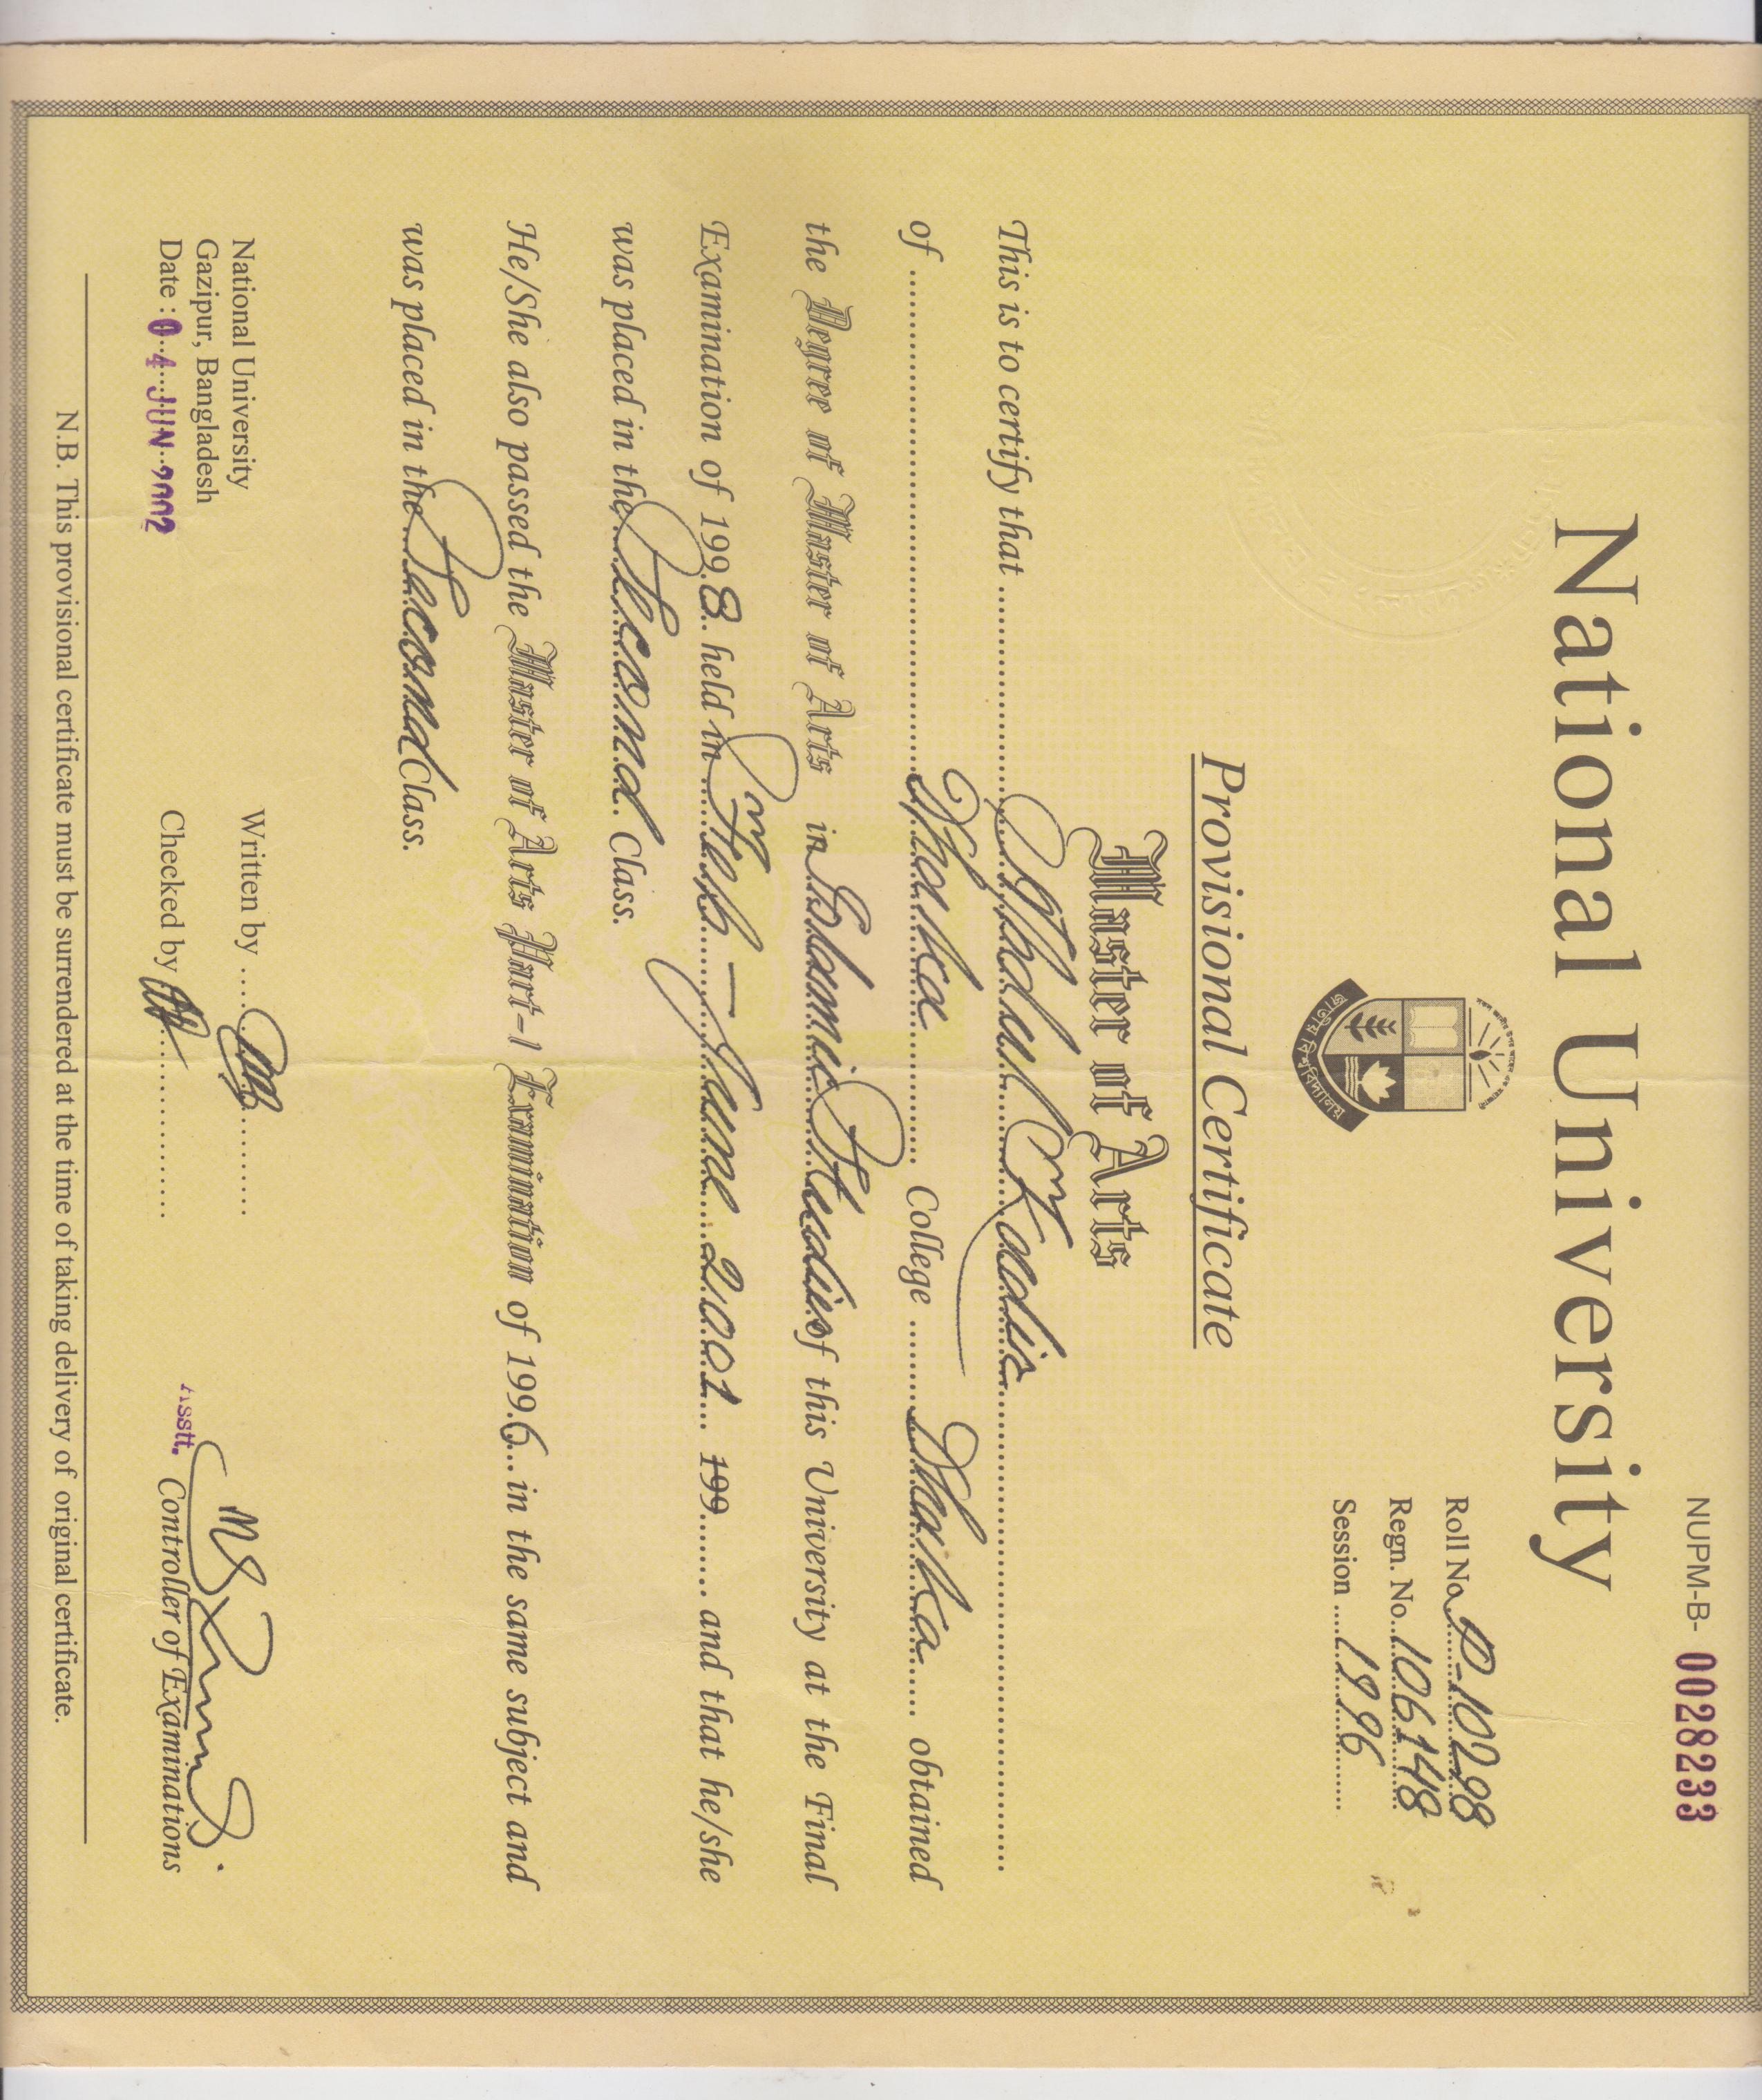 NUPM-B- 0028233
National University
Roll No. P-10298
Regn. No. 106148
Session 1996
জাতীয় বিশ্ববিদ্যালয়
Provisional Certificate
Master of Arts
This is to certify that Abdul Kadir
of Dhaka College Dhaka obtained
the Degree of Master of Arts in Islamic Studies of this University at the Final
Examination of 1998 held in Feb - June 2001 199 and that he/she
was placed in the Second Class.
He/She also passed the Master of Arts Part-1 Examination of 1996 in the same subject and
was placed in the Second Class.
National University
Gazipur, Bangladesh
Date : 04 JUN 2002
Written by
Checked by
Asstt. Controller of Examinations
N.B. This provisional certificate must be surrendered at the time of taking delivery of original certificate.